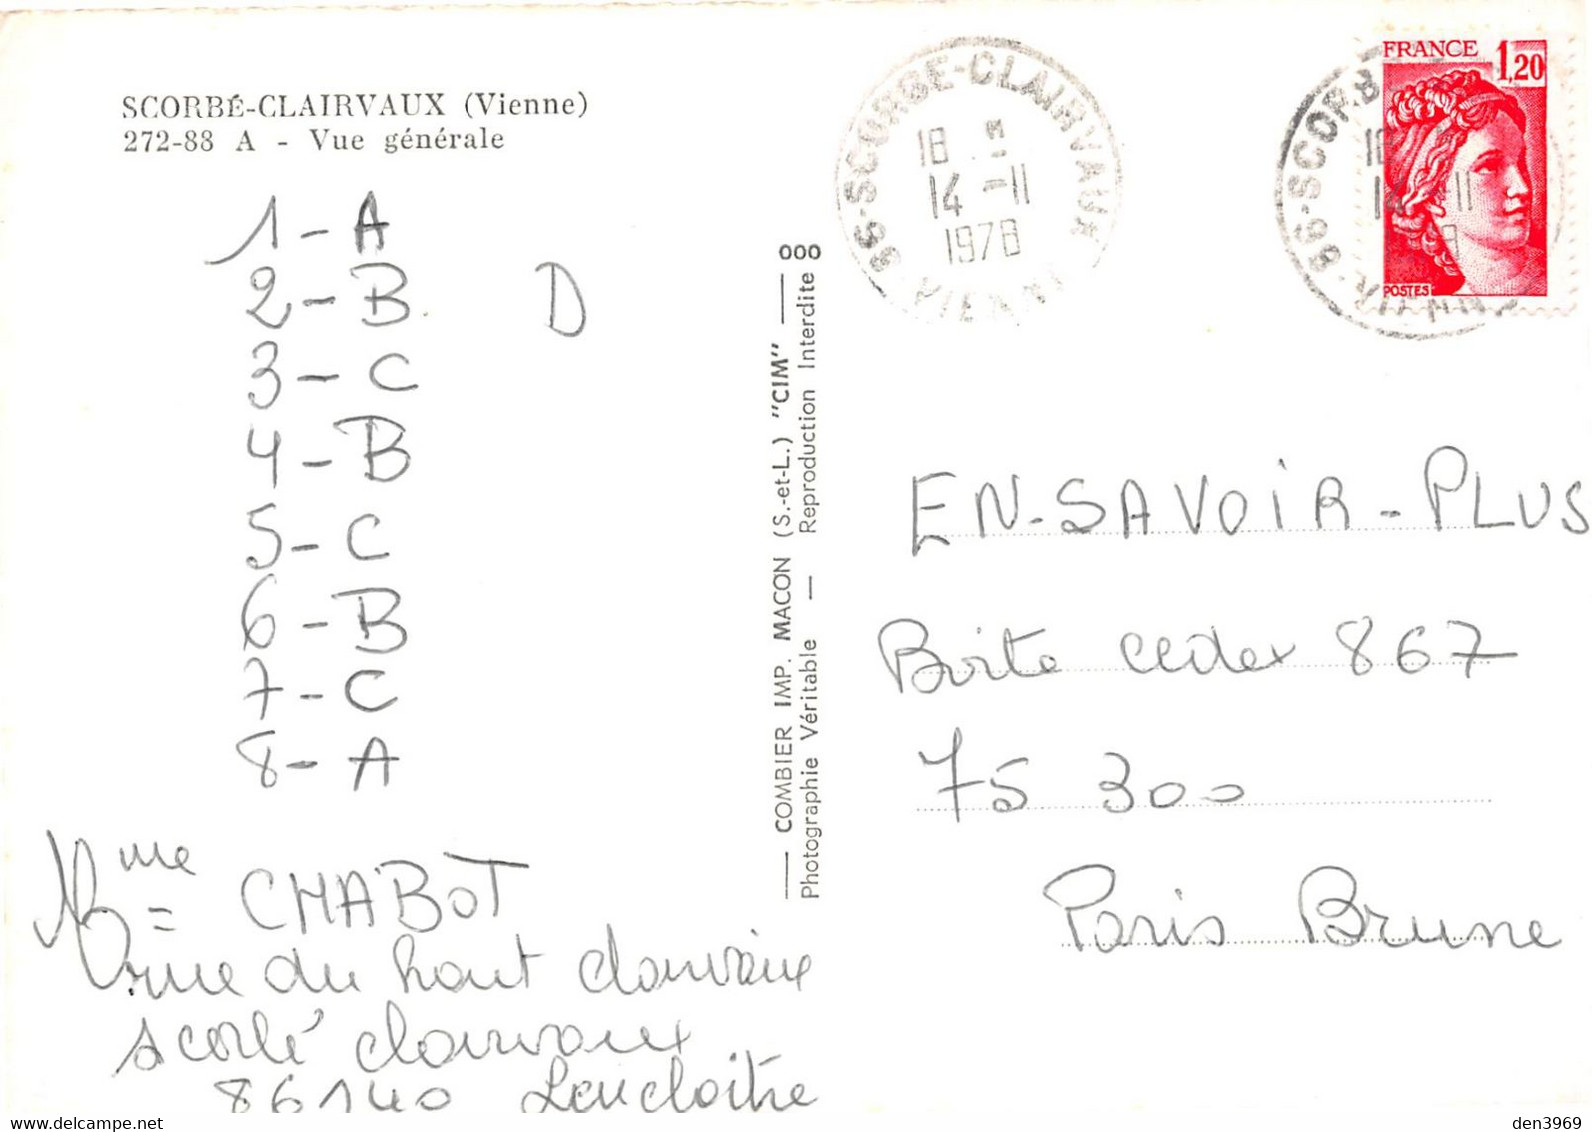 SCORBÉ-CLAIRVAUX (Vienne)
272-88 A - Vue générale
1 - A
2 - B
D
3 - C
4 - B
5 - C
6 - B
7 - C
8 - A
Mme CHABOT
rue du haut clairvaux
scorbé clairvaux
86140 Lencloitre
— COMBIER IMP. MACON (S.-et-L.) "CIM" —
Photographie Véritable — Reproduction Interdite
000
86-SCORBE-CLAIRVAUX
18 H
14 -11
1978
VIENNE
FRANCE
1,20
POSTES
86-SCORB
18
14 -11
8
VIENN
EN-SAVOIR-PLUS
Boite cedex 867
75 300
Paris Brune
den3969